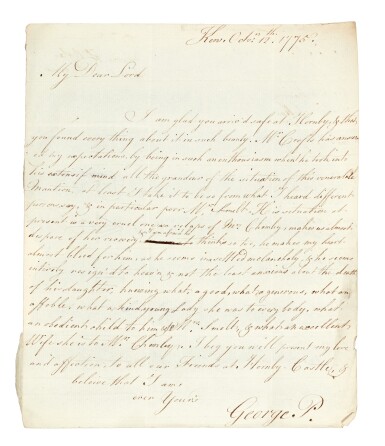 Kew. Octr. 12th. 1775.
My Dear Lord
I am glad you arriv'd safe at Hornby, & that
you found every thing about it in such beauty. Mr. Crofts has answer
ed my expectations by being in such an enthusiasm when he took into
his extensif mind all the grandeur of the situation of this venerable
Mansion, at least I take it to be so from what I heard different
persons say, & in particular poor Mr. Smelt. His situation at
present is a very cruel one, a relapse of Mrs. Chomley makes us almost
despair of her recovery to think so he, he makes my heart
almost bleed for him, as he seems in settled melancholy, & he seems
intirely resign'd to heav'n & not the least anxious about the death
of his daughter, knowing what a good, what a generous, what an
affable, what a kind young Lady she was to every body, what
an obedient child to him & Mrs. Smelt, & what an excellent
Wife she is to Mr. Chomley. I beg you will present my love
and affection to all our Friends at Hornby Castle, &
believe that I am
ever Yours
George P.